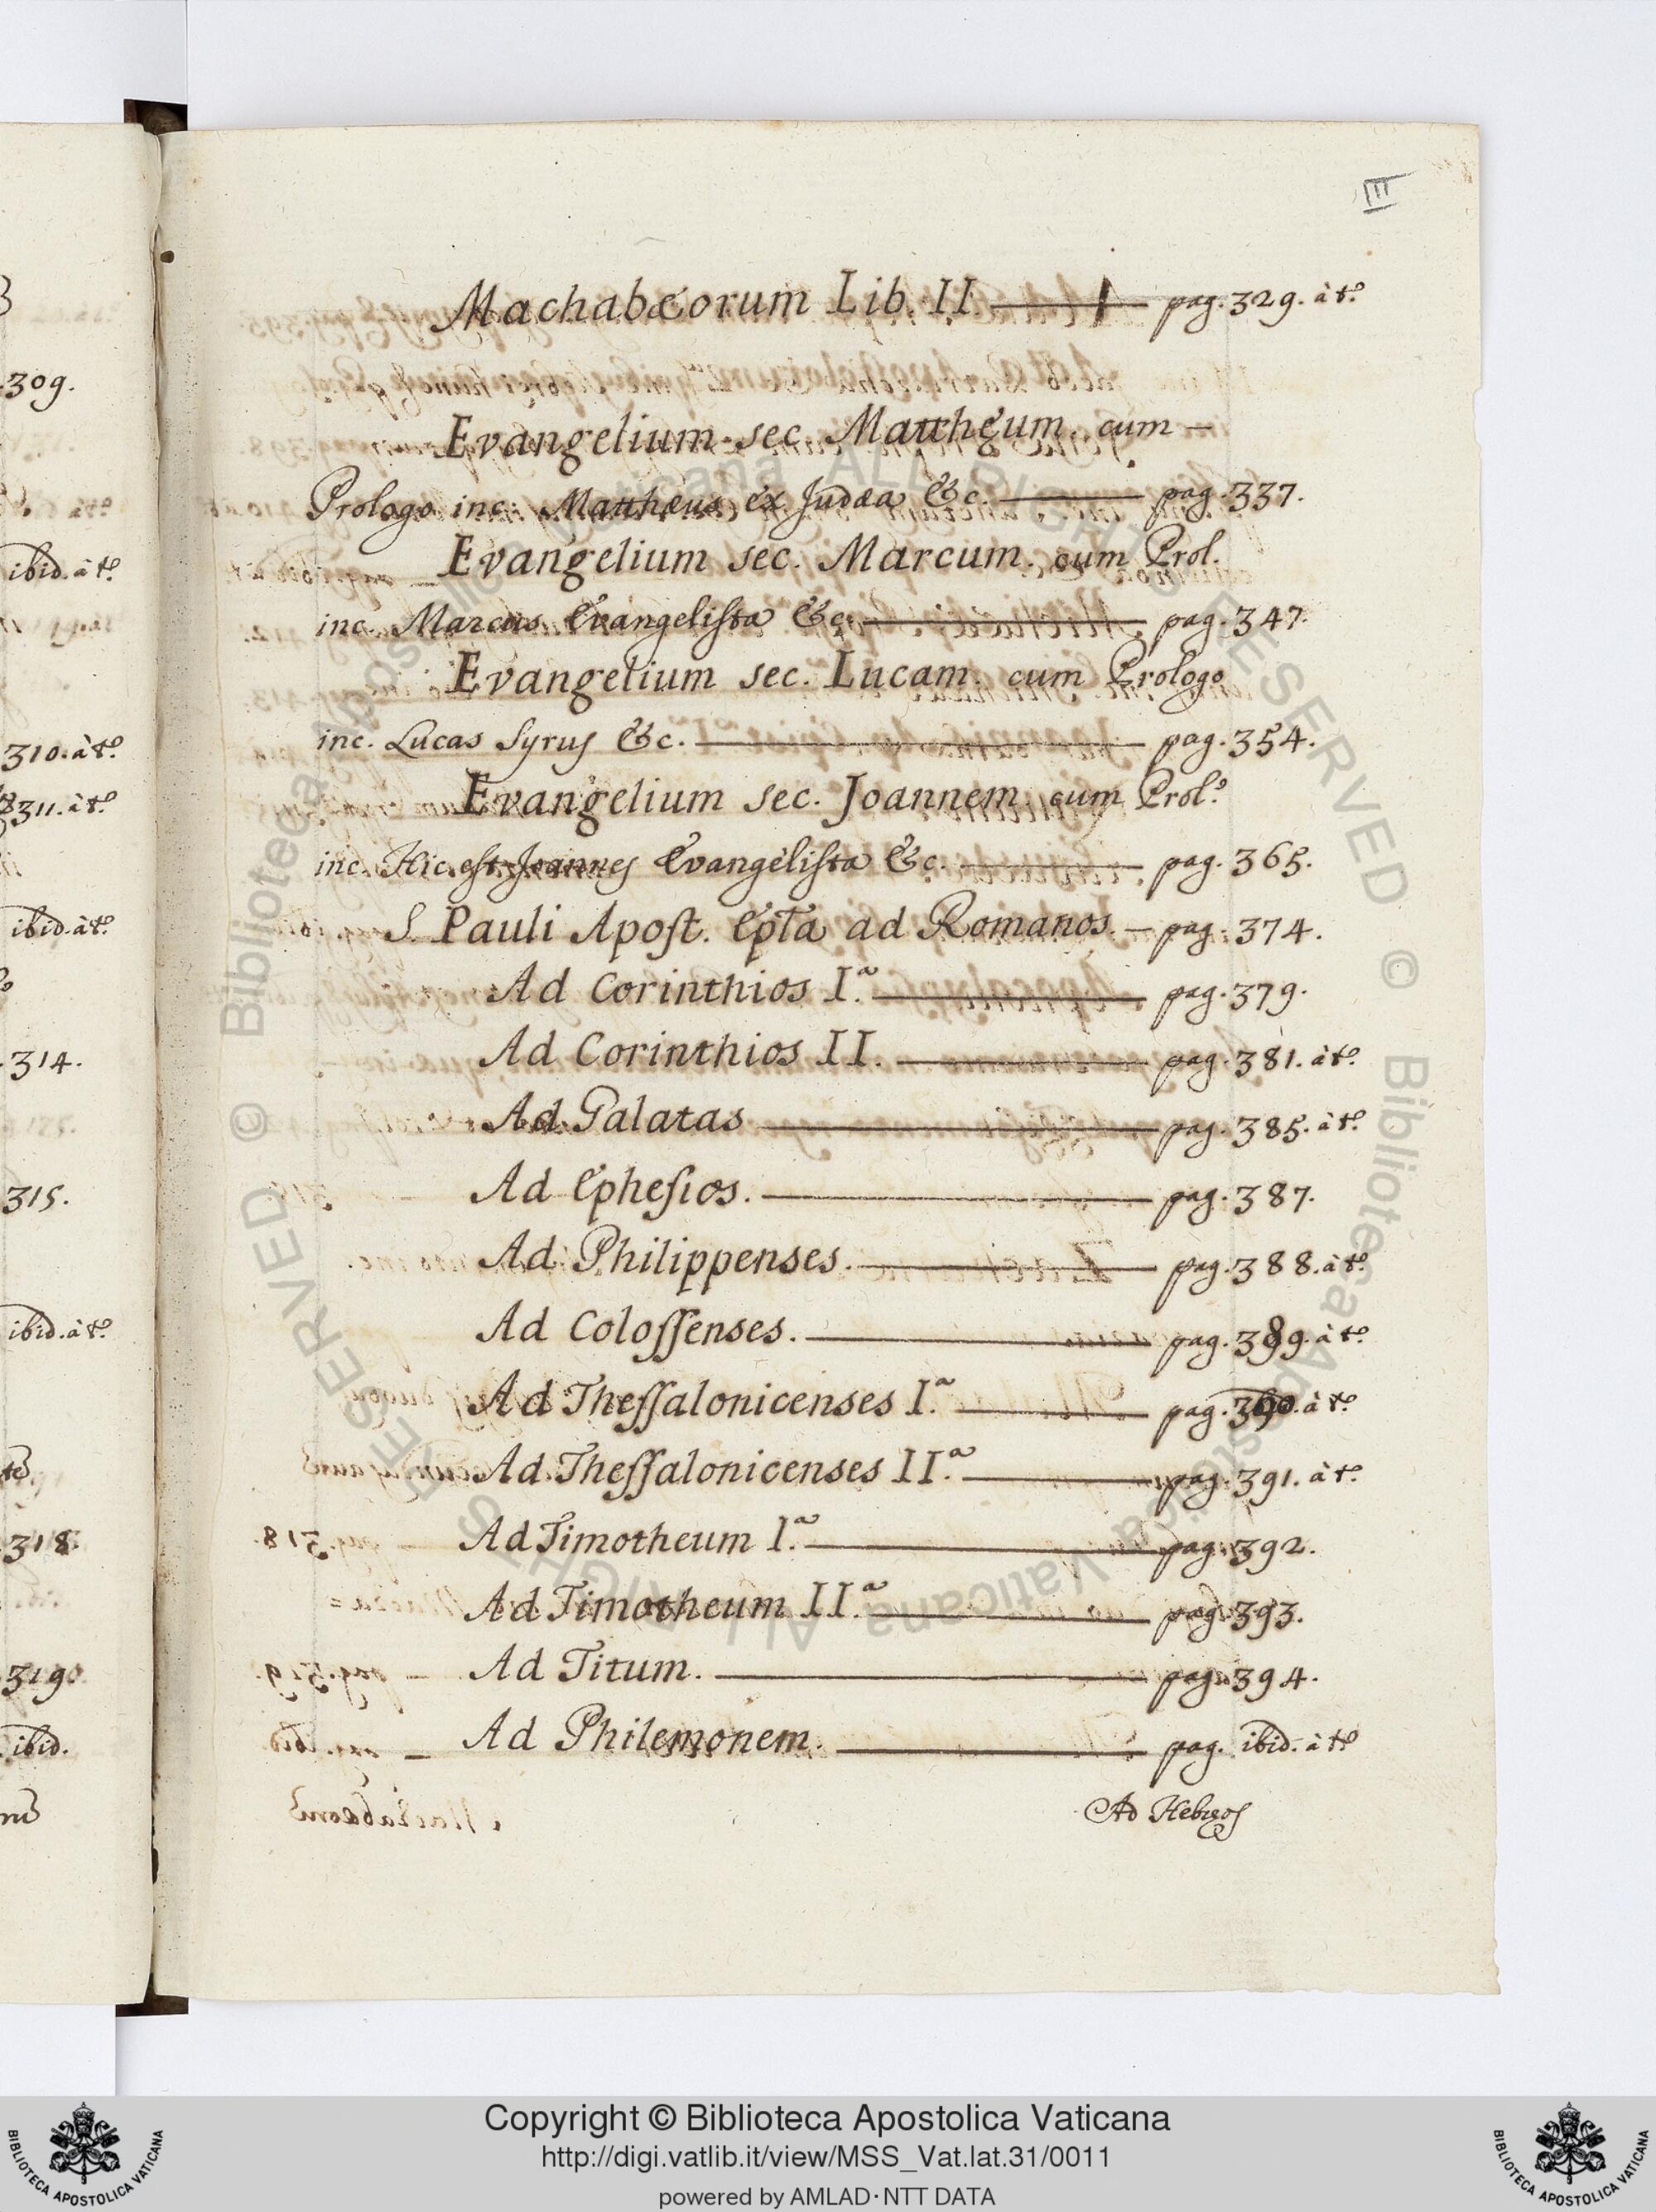 III
Machabæorum Lib. II — pag. 329. à tº.
Evangelium sec. Mattheum. cum —
Prologo inc. Matthæus ex Judæa &c. — pag. 337.
Evangelium sec. Marcum. cum Prol.
inc. Marcus Evangelista &c. — pag. 347.
Evangelium sec. Lucam. cum Prologo
inc. Lucas Syrus &c. — pag. 354.
Evangelium sec. Joannem. cum Prol.º
inc. Hic est Joannes Evangelista &c. — pag. 365.
S. Pauli Apost. Epta ad Romanos. — pag. 374.
Ad Corinthios I.ª — pag. 379.
Ad Corinthios II. — pag. 381. à tº.
Ad Galatas — pag. 385. à tº.
Ad Ephesios. — pag. 387.
Ad Philippenses. — pag. 388. à tº.
Ad Colossenses. — pag. 389. à tº.
Ad Thessalonicenses I.ª — pag. 390. à tº.
Ad Thessalonicenses II.ª — pag. 391. à tº.
Ad Timotheum I.ª — pag. 392.
Ad Timotheum II.ª — pag. 393.
Ad Titum. — pag. 394.
Ad Philemonem. — pag. ibid. à tº
Ad Hebręos
309.
ibid. à tº.
310. à tº.
311. à tº.
ibid. à tº.
314.
315.
ibid. à tº.
318.
319.
ibid.
© Biblioteca Apostolica Vaticana ALL RIGHTS RESERVED
© Biblioteca Apostolica Vaticana ALL RIGHTS RESERVED
Copyright © Biblioteca Apostolica Vaticana
http://digi.vatlib.it/view/MSS_Vat.lat.31/0011
powered by AMLAD·NTT DATA
BIBLIOTECA APOSTOLICA VATICANA
BIBLIOTECA APOSTOLICA VATICANA